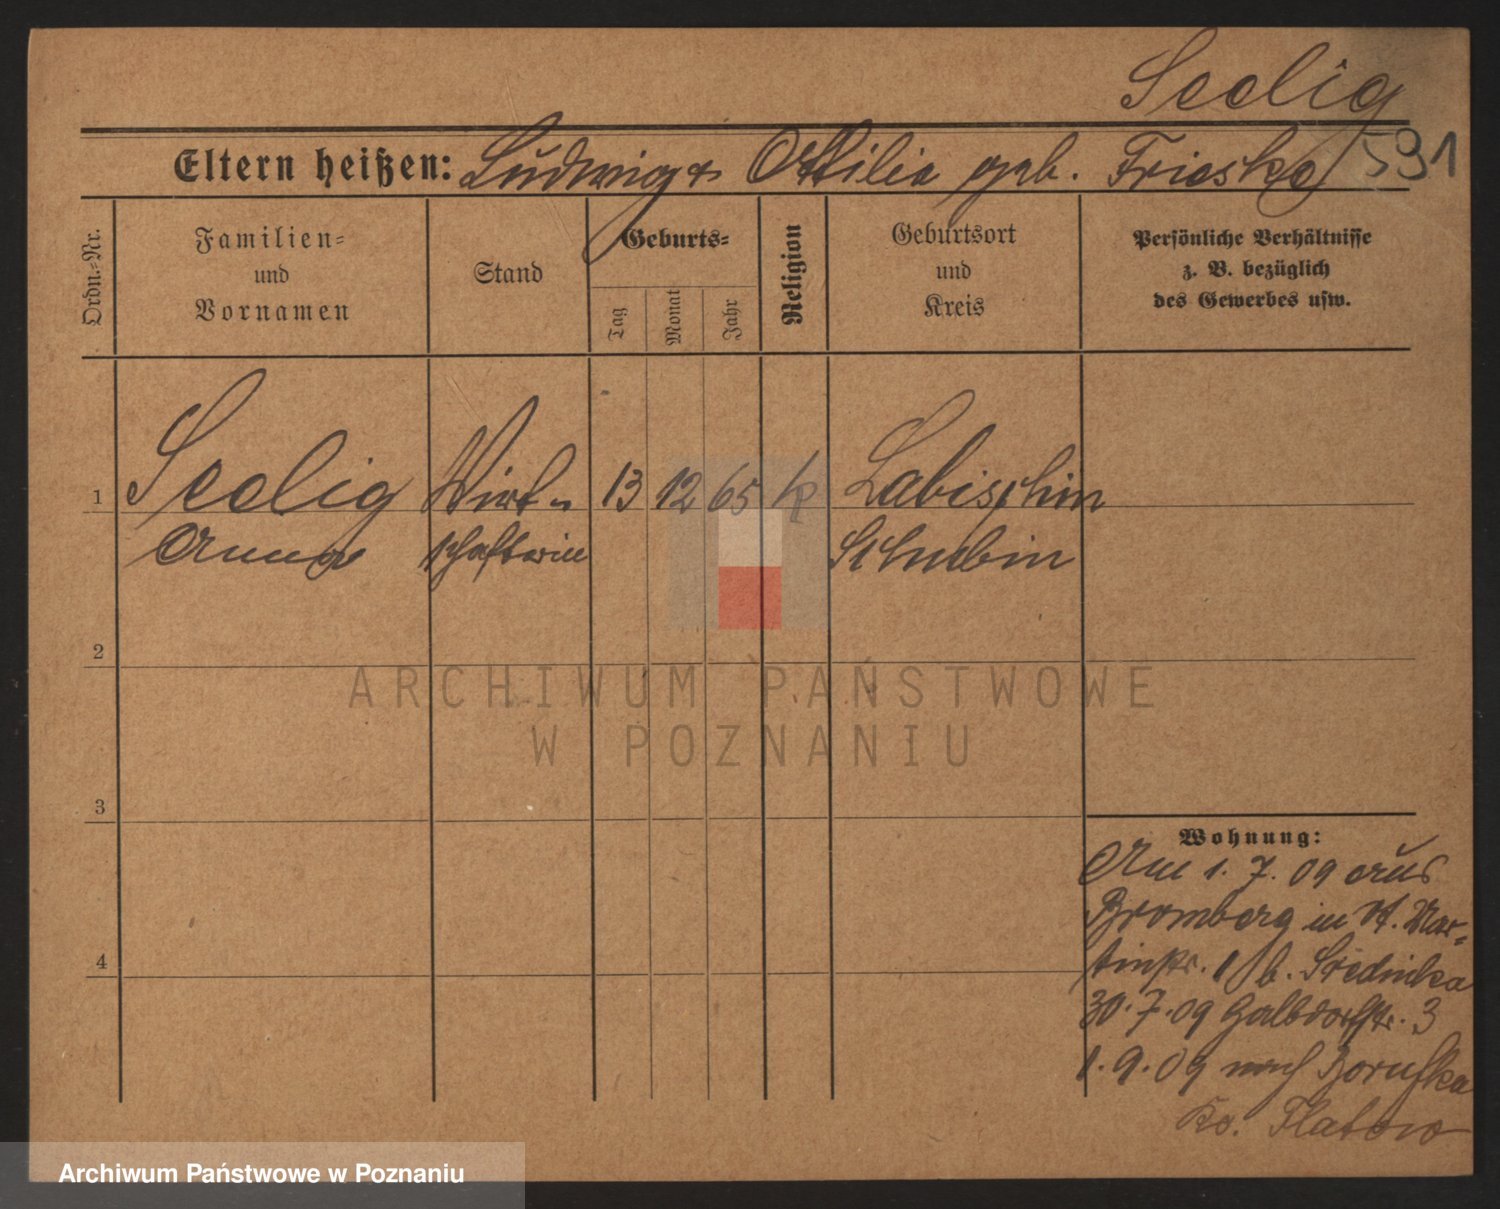 Seelig
Eltern heißen: Ludwig & Ottilia geb. Frieske 591
Ordn.-Nr.
Familien-
und
Vornamen
Stand
Geburts-
Tag
Monat
Jahr
Religion
Geburtsort
und
Kreis
Persönliche Verhältnisse
z. B. bezüglich
des Gewerbes usw.
1 Seelig Wirt- 13 12 65 k Labischin
Anna schafterin Schubin
2
3
4
Wohnung:
Am 1. 7. 09 aus
Bromberg in St. Mar-
tinstr. b. Sredinka
30. 7. 09 Halbdorfstr. 3
1. 9. 09 nach Boruska
Kr. Flatow
ARCHIWUM PAŃSTWOWE
W POZNANIU
Archiwum Państwowe w Poznaniu